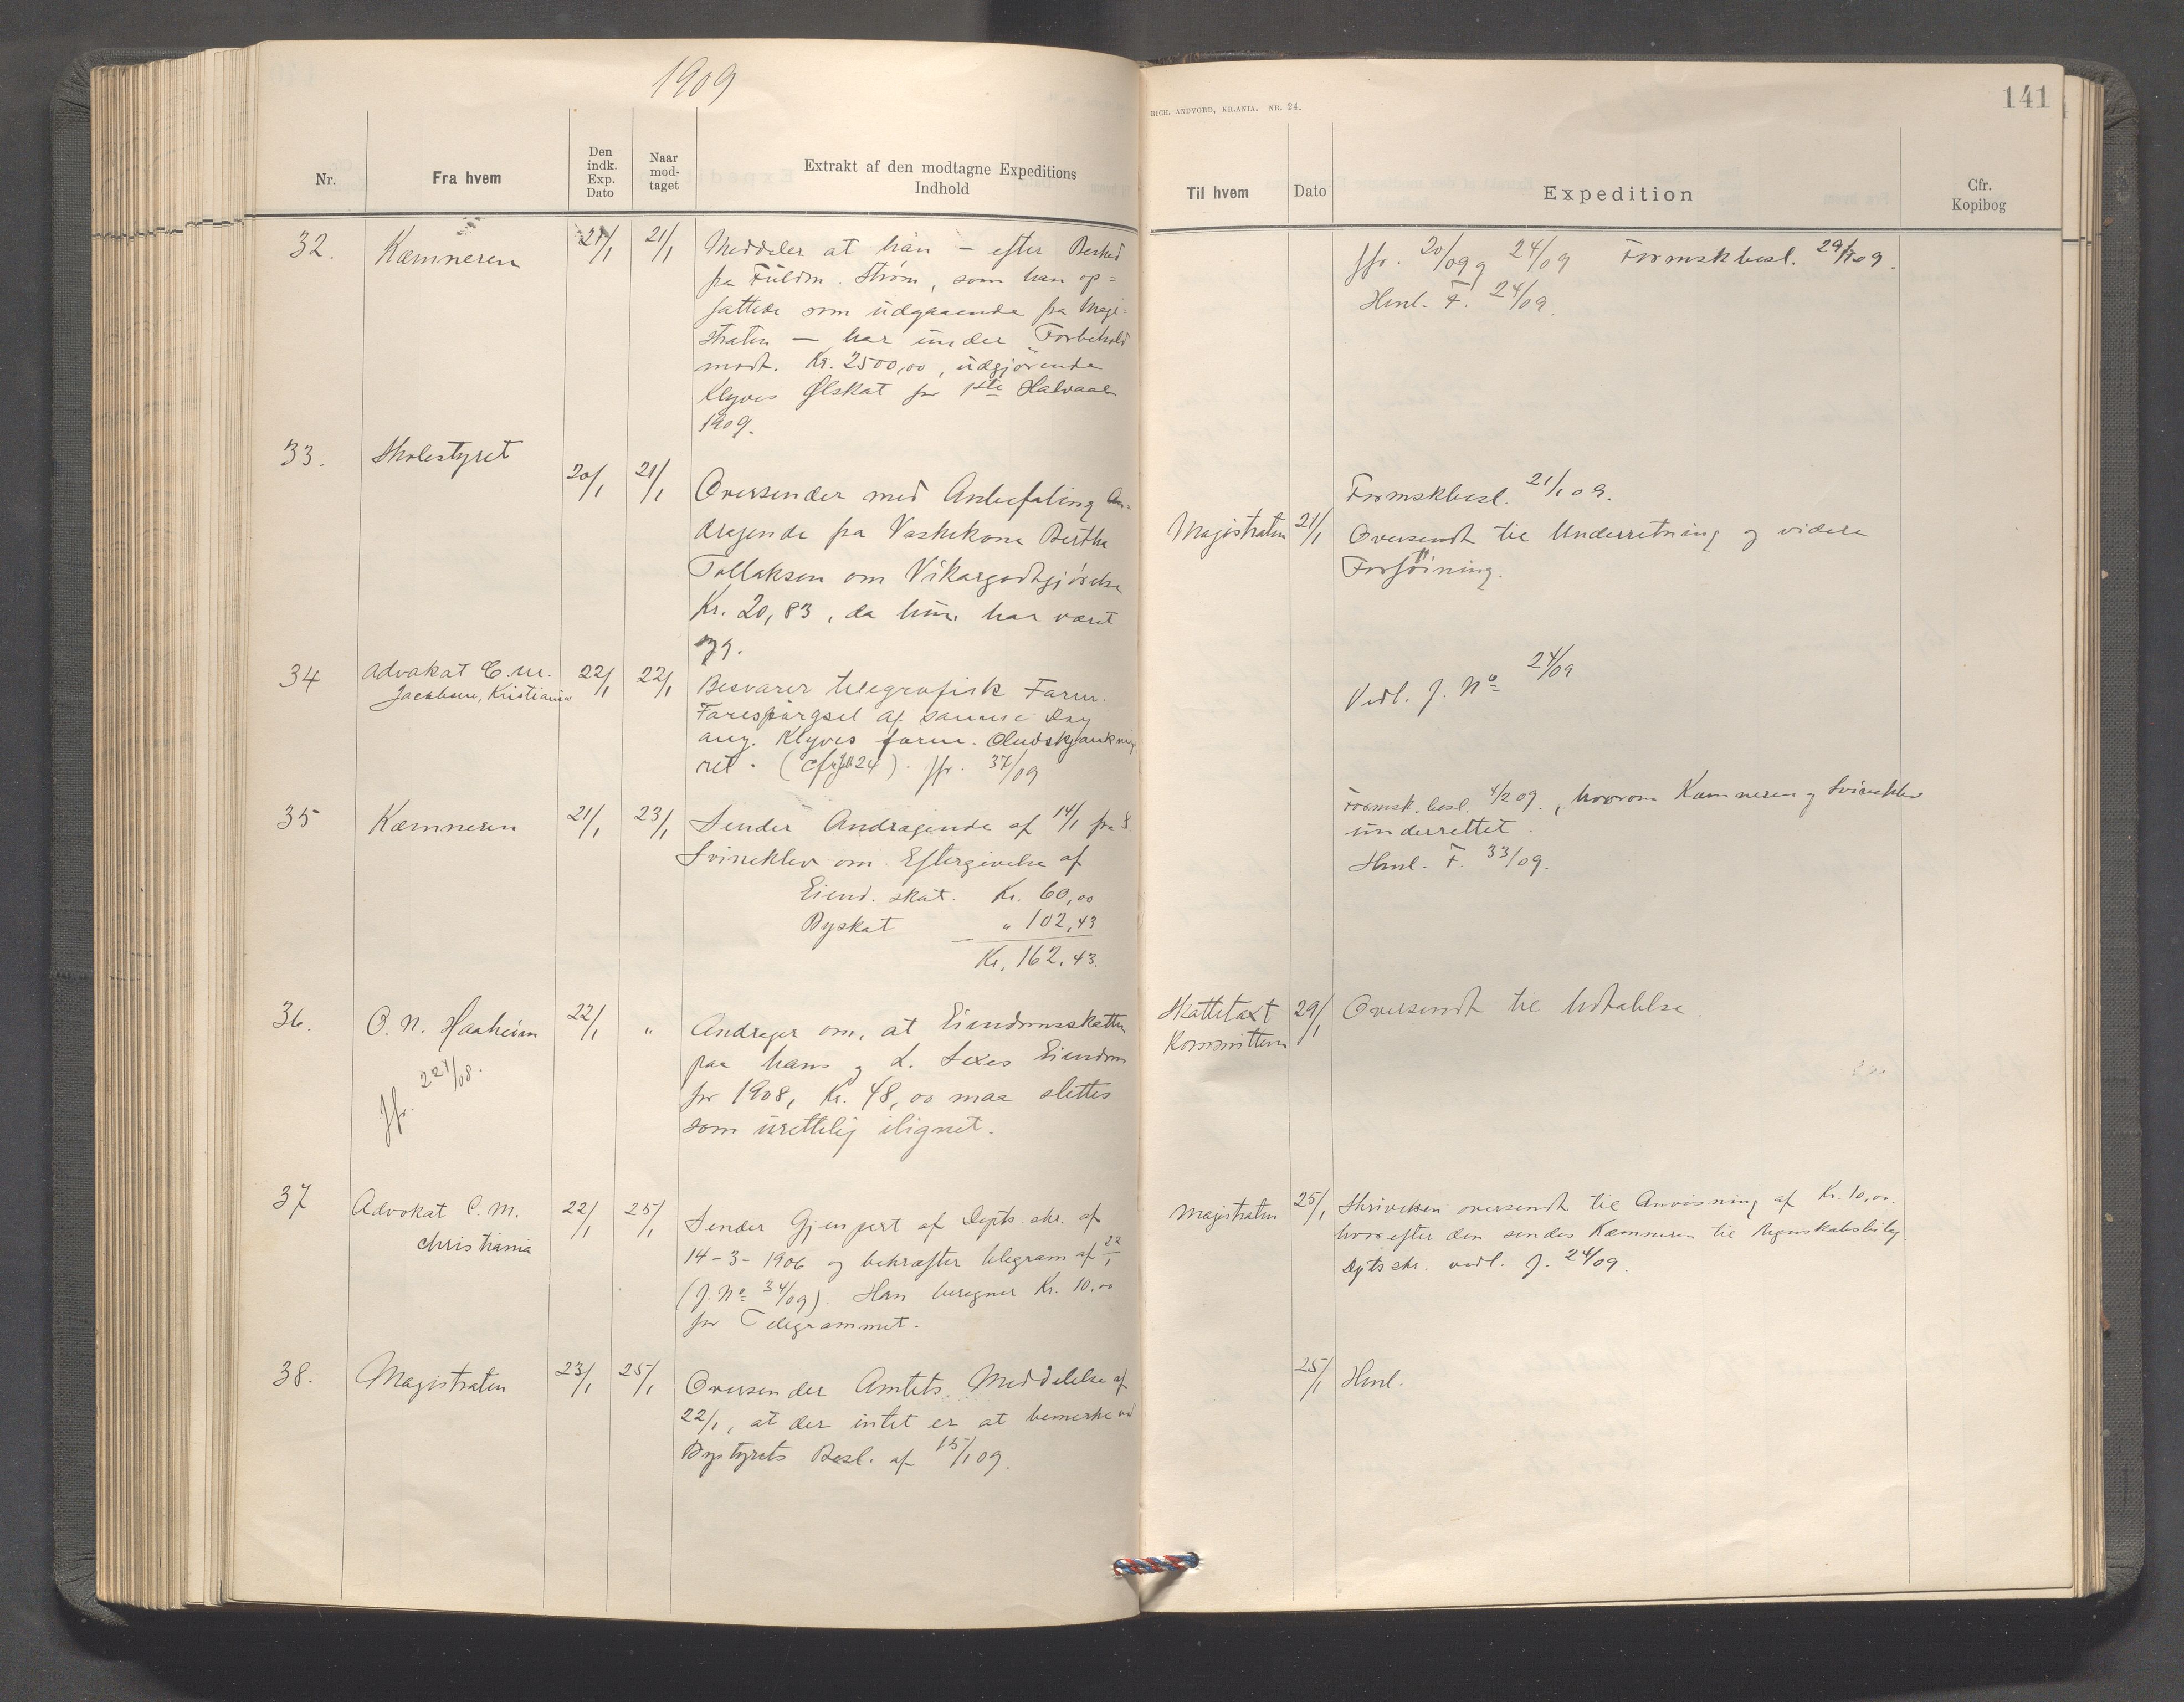 1909
Nr.
Fra hvem
Den indk. Exp. Dato
Naar mod- taget
Extrakt af den modtagne Expeditions Indhold
32.
Kæmneren
21/1
21/1
Meddeler at han – efter Besked
fra Fuldm. Strøm, som han op=
fattede som udgaaende fra Magi=
straten – har under Forbehold
modt. Kr. 2500,00, udgjørende
Klyves Ølskat for 1ste Halvaar
1909.
33.
Skolestyret
20/1
21/1
Oversender med Anbefaling An-
dragende fra Vaskekone Berthe
Tollaksen om Vikargodtgjørelse
Kr. 20,83, da hun har været
syg.
34
Advokat C. M.
Jacobsen, Kristiania
22/1
22/1
Besvarer telegrafisk Form.
Forespørgsel af samme Dag
ang. Klyves form. Øludskjænknings
ret. (cfr 24). Jfr. 37/09
35
Kæmneren
21/1
23/1
Sender Andragende af 14/1 fra S.
Svineklev om Eftergivelse af
Eiend. skat. Kr. 60,00
Byskat " 102,43
Kr. 162,43.
36.
O. N. Haaheim
22/1
"
Jfr. 221/08.
Andrager om, at Eiendomsskatten
paa hans og L. Sexes Eiendom
for 1908, Kr. 48,00 maa slettes
som urettelig ilignet.
37
Advokat C. M.
Christiania
22/1
25/1
Sender Gjenpart af Depts. skr. af
14-3-1906 og bekræfter telegram af 22/1
(J. No 34/09). Han beregner Kr. 10,00
for Telegrammet.
38.
Magistraten
23/1
25/1
Oversender Amtets Meddelelse af
22/1, at der intet er at bemerke ved
Bystyrets Besl. af 15/1 09.
RICH. ANDVORD, KR.ANIA. NR. 24.
141
Til hvem
Dato
Expedition
Cfr. Kopibog
Jfr. 20/09 og 24/09 Formskbesl. 29/1 09.
Henl. F. 24/09.
Formskbesl. 21/1 09.
Magistraten
21/1
Oversendt til Underretning og videre
Forføining.
Vedl. J. No 24/09
Formsk. besl. 4/2 09., hvorom Kæmneren og Svineklev
underrettet.
Henl. F. 33/09.
Skattetaxt
Kommitteen
29/1
Oversendt til Udtalelse.
Magistraten
25/1
Skrivelsen oversendt til Anvisning af Kr. 10,00.
hvorefter den sendes Kæmneren til Regnskabsbilag
Dpts skr. vedl. J. 24/09.
25/1
Henl.